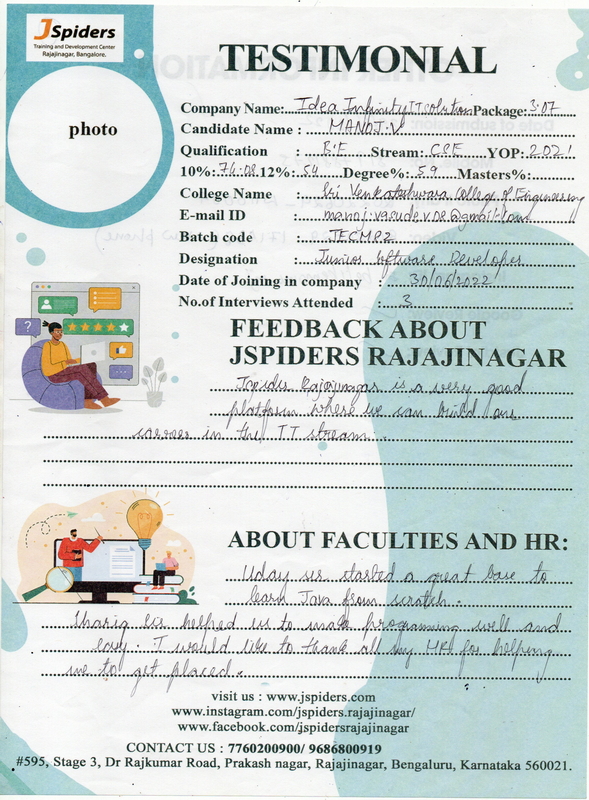 JSpiders
Training and Development Center
Rajajinagar, Bangalore.
TESTIMONIAL
photo
Company Name: Idea Infinity IT solution Package: 3.07
Candidate Name : MANOJ.V
Qualification : B.E Stream: CSE YOP: 2021
10%: 74.08 12%: 54 Degree%: 59 Masters%:
College Name : Sri Venkateshwara College of Engineering
E-mail ID : manoj.vasudev.08@gmail.com
Batch code : JECMP2
Designation : Junior software Developer
Date of Joining in company : 30/06/2022
No.of Interviews Attended : 3
FEEDBACK ABOUT
JSPIDERS RAJAJINAGAR
Jspider Rajajinagar is a very good
platform where we can build our
career in the IT stream.
ABOUT FACULTIES AND HR:
Uday sir started a great base to
learn Java from scratch.
sir helped us to make programming well and
easy. I would like to thank all my HR for helping
me to get placed.
visit us : www.jspiders.com
www.instagram.com/jspiders.rajajinagar/
www.facebook.com/jspidersrajajinagar
CONTACT US : 7760200900/ 9686800919
#595, Stage 3, Dr Rajkumar Road, Prakash nagar, Rajajinagar, Bengaluru, Karnataka 560021.